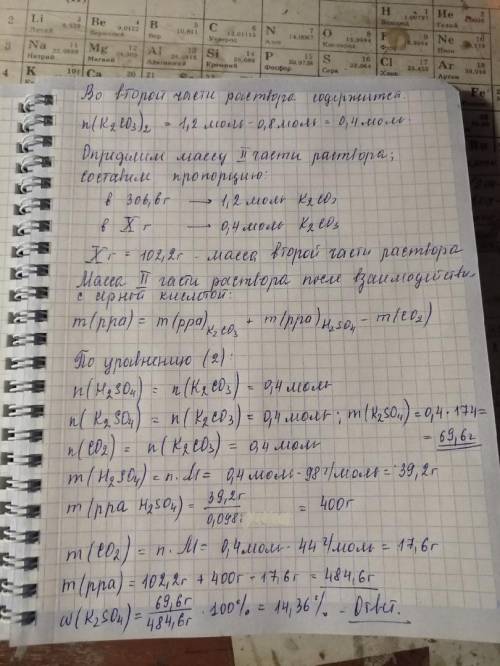 H
He
2
Li
Be
B
C
N
O
F
Ne
3
Na
Mg
Al
Si
P
S
Cl
Ar
Натрий
Магний
Фосфор
Сера
Хлор
Аргон
4
K
Ca
Во второй части раствора содержится
n(K₂CO₃)₂ = 1,2 моль - 0,8 моль = 0,4 моль
Определим массу II части раствора;
составим пропорцию:
в 306,6г → 1,2 моль K₂CO₃
в X г → 0,4 моль K₂CO₃
X г = 102,2г - масса второй части раствора
Масса II части раствора после взаимодействия
с серной кислотой:
m(рра) = m(рра)K₂CO₃ + m(рра)H₂SO₄ - m(CO₂)
По уравнению (2):
n(H₂SO₄) = n(K₂CO₃) = 0,4 моль
n(K₂SO₄) = n(K₂CO₃) = 0,4 моль; m(K₂SO₄) = 0,4 · 174 =
n(CO₂) = n(K₂CO₃) = 0,4 моль = 69,6г
m(H₂SO₄) = n · M = 0,4 моль · 98 г/моль = 39,2г
m(рра H₂SO₄) = 39,2г / 0,098 = 400г
m(CO₂) = n · M = 0,4 моль · 44 г/моль = 17,6г
m(рра) = 102,2г + 400г - 17,6г = 484,6г
ω(K₂SO₄) = 69,6г / 484,6г · 100% = 14,36% - Ответ.